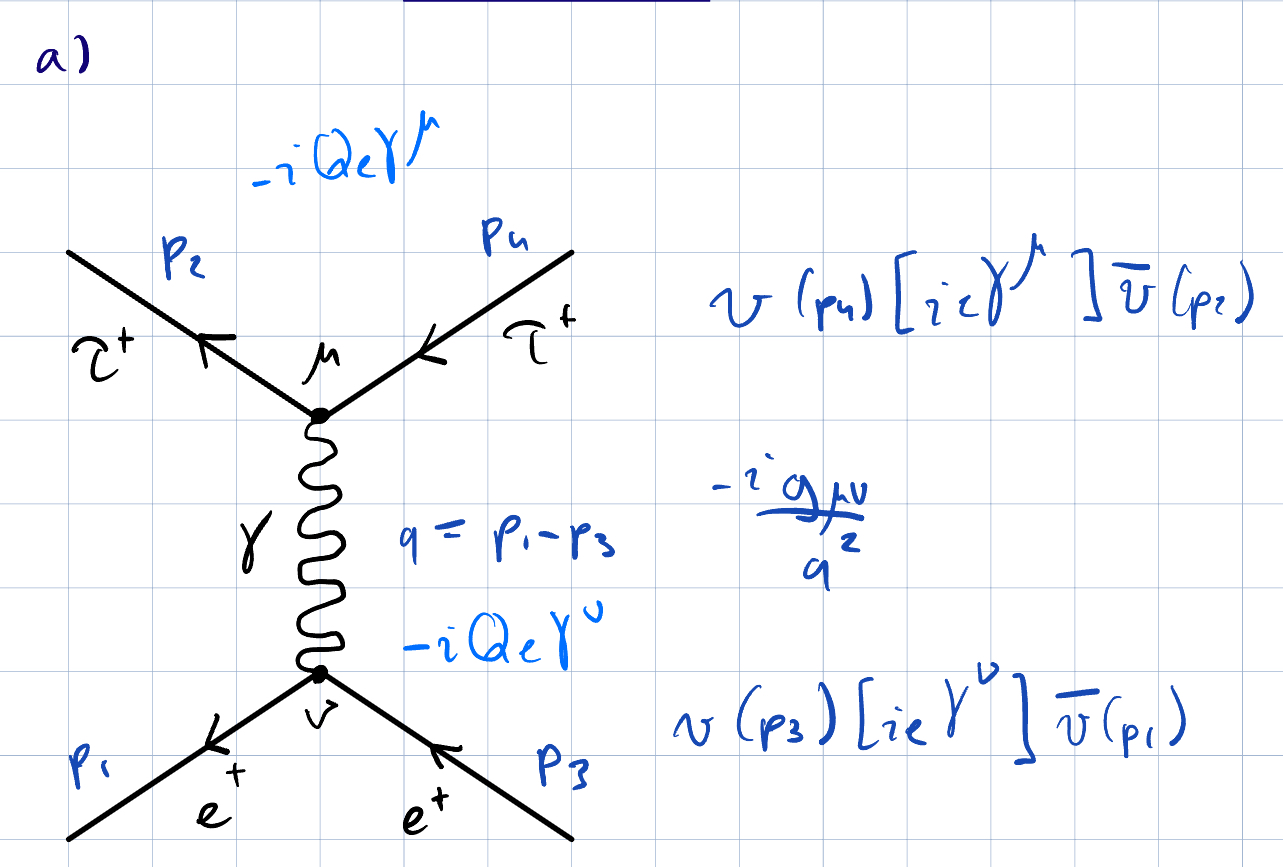 a)
-iQeγ^μ
p₂
p₄
τ⁺
μ
τ⁺
v(p₄)[ieγ^μ] v̄(p₂)
γ
q = p₁-p₃
-i g_μν / q²
-iQeγ^ν
ν
v(p₃)[ieγ^ν] v̄(p₁)
p₁
e⁺
e⁺
p₃